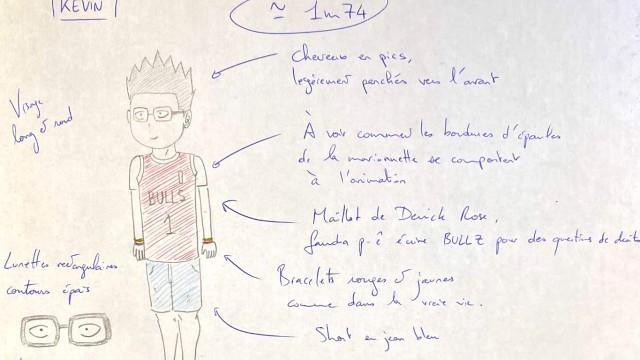 KEVIN
≃ 1m74
Cheveux en pics,
légèrement penchés vers l'avant
Visage
long & rond
À voir comment les bordures d'épaules
de la marionnette se comportent
à l'animation
BULLS
1
Maillot de Derrick Rose,
faudra p-ê écrire BULLZ pour des questions de droits
Lunettes rectangulaires
contours épais
Bracelets rouges & jaunes
comme dans la vraie vie.
Short en jean bleu